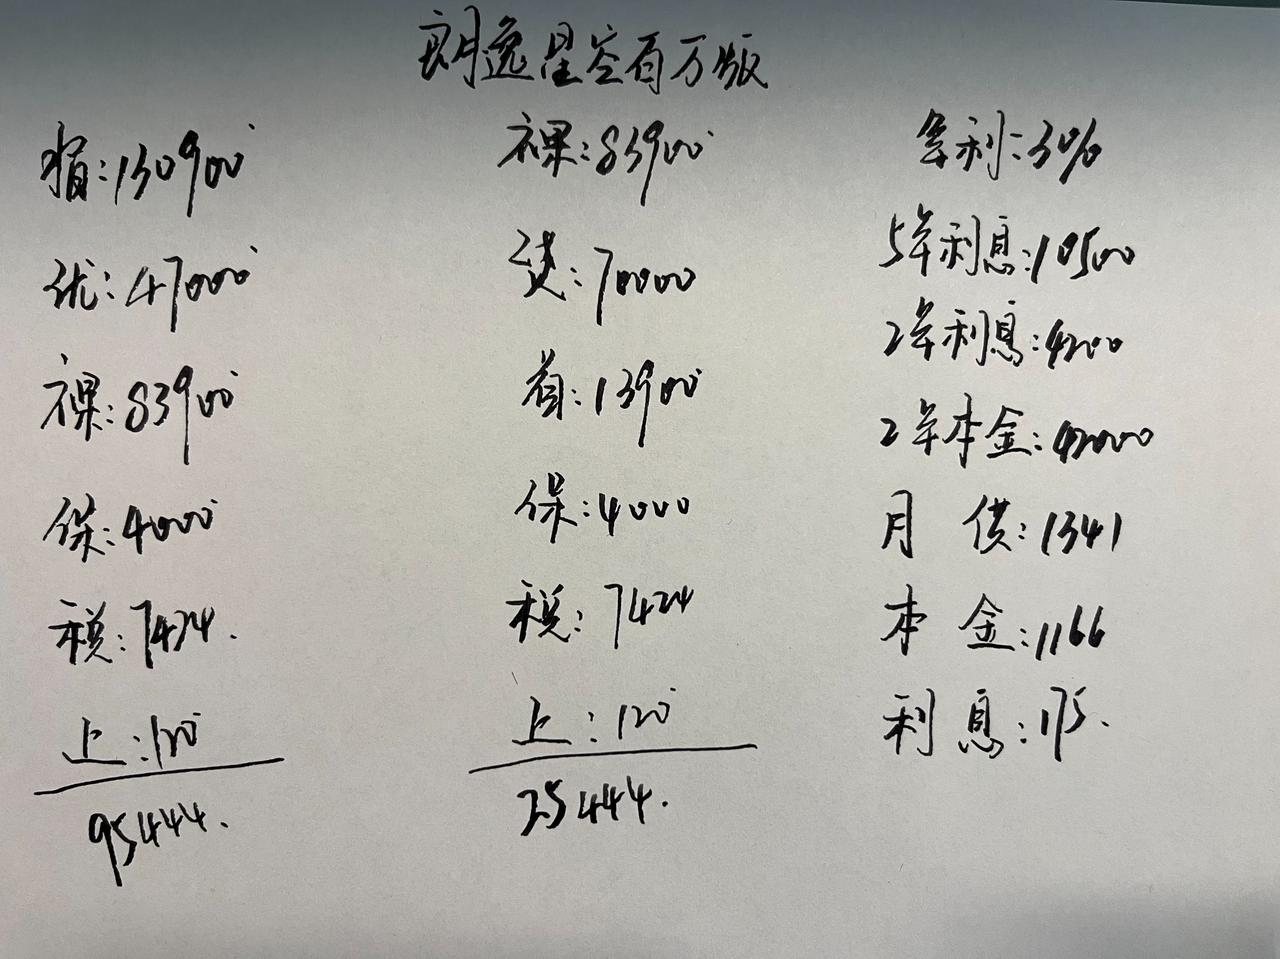 朗逸星空百万版
指:130900
优:47000
裸:83900
保:4000
税:7424.
上:120
95444.
裸:83900
贷:70000
首:13900
保:4000
税:7424
上:120
25444.
年利:3%
5年利息:10500
2年利息:4200
2年本金:42000
月 供:1341
本 金:1166
利 息:175.